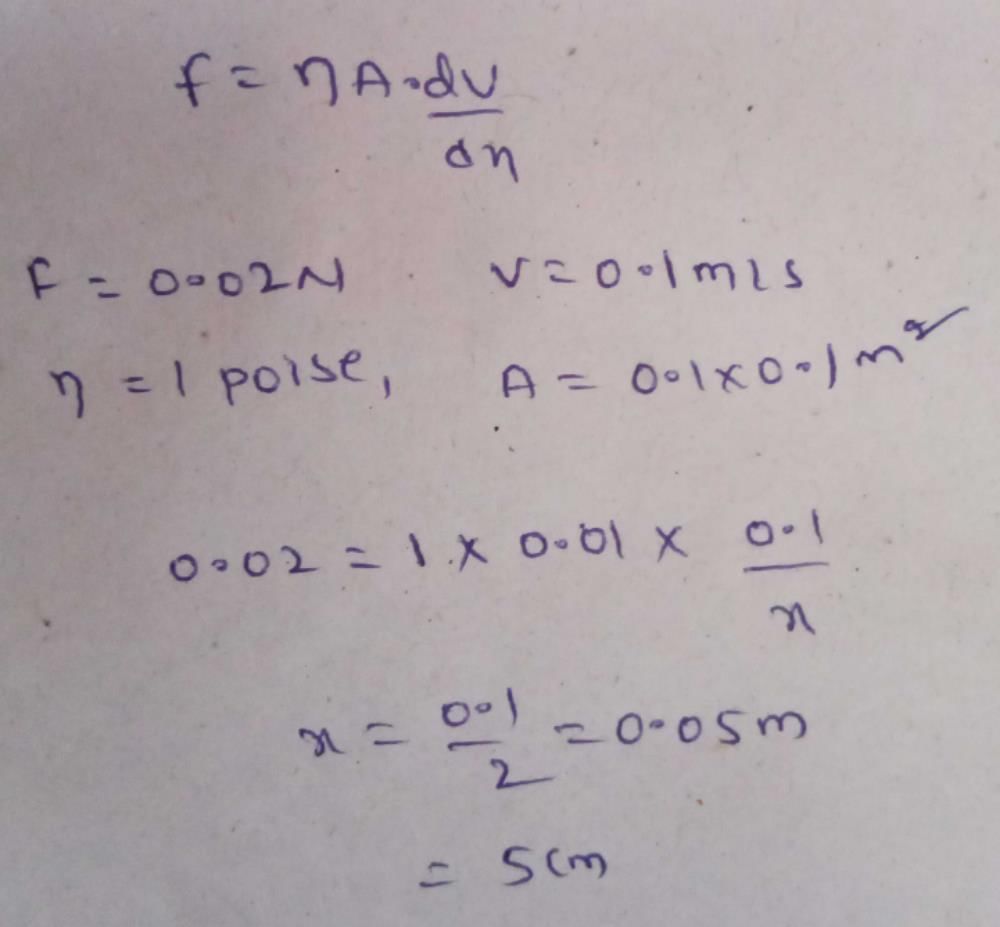 f = ηA.dv/dη
F = 0.02N v = 0.1m/s
η = 1 poise, A = 0.1x0.1m²
0.02 = 1 x 0.01 x 0.1/x
x = 0.1/2 = 0.05m
= 5cm